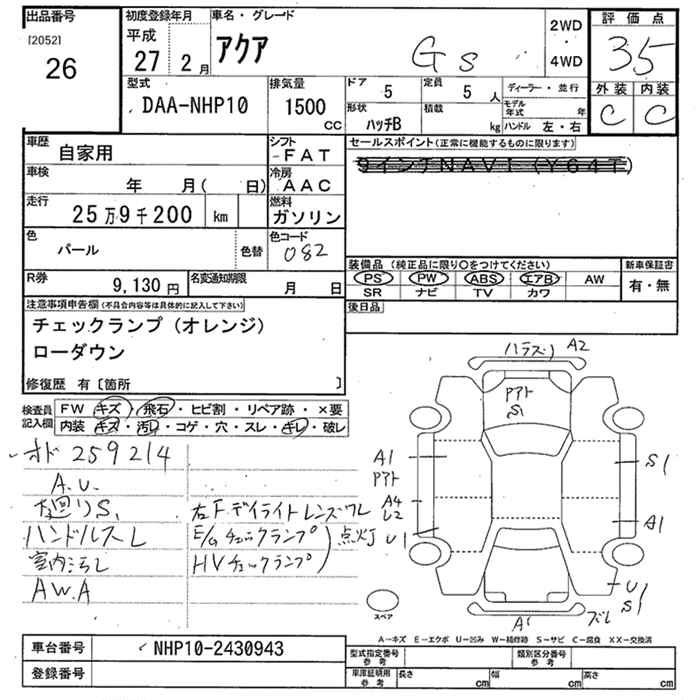 出品番号
[2052]
26
初度登録年月
平成
27 2月
車名・グレード
アクア GS
2WD
・
4WD
評価点
3.5
外装 内装
C C
型式
DAA-NHP10
排気量
1500
CC
ドア 5
定員 5人
形状 ハッチB
積載 kg
ディーラー・並行
モデル年式 年
ハンドル 左・右
車歴 自家用
シフト FAT
車検 年 月( 日)
冷房 AAC
走行 25万9千200 km
燃料 ガソリン
色 パール 色替
色コード 082
R券 9,130円
名変通知期限 月 日
セールスポイント(正常に機能するものに限り)
9インチNAVI(Y64T)
装備品(純正品に限り○をつけてください)
PS PW ABS エアB AW
SR ナビ TV カワ
新車保証書
有・無
後日品
注意事項申告欄(不具合内容等は具体的に記入して下さい)
チェックランプ(オレンジ)
ローダウン
修復歴 有〔箇所 〕
検査員記入欄
FW キズ・飛石・ヒビ割・リペア跡・×要
内装 キズ・汚れ・コゲ・穴・スレ・キレ・破レ
オド 259214
A.U.
S
ハンドルスレ
室内汚レ
A W.A
右F.デイライトレンズワレ
E/Gチェックランプ
HVチェックランプ
点灯
A2
S1
A1
A4
U2
U1
S1
A1
U1
S1
A1
スペア
A-キズ E-エクボ U-凹み W-補修跡 S-サビ C-腐食 XX-交換済
車台番号 NHP10-2430943
登録番号
型式指定番号 参考
類別区分番号 参考
車庫証明用 参考
長さ cm
幅 cm
高さ cm